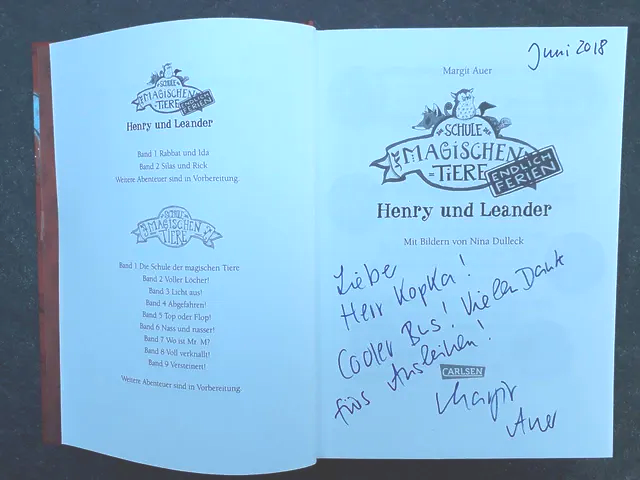 SCHULE
DER MAGISCHEN
TIERE
ENDLICH
FERIEN
Henry und Leander
Band 1 Rabbat und Ida
Band 2 Silas und Rick
Weitere Abenteuer sind in Vorbereitung.
SCHULE
DER MAGISCHEN
TIERE
Band 1 Die Schule der magischen Tiere
Band 2 Voller Löcher!
Band 3 Licht aus!
Band 4 Abgefahren!
Band 5 Top oder Flop!
Band 6 Nass und nasser!
Band 7 Wo ist Mr. M?
Band 8 Voll verknallt!
Band 9 Versteinert!
Weitere Abenteuer sind in Vorbereitung.
Juni 2018
Margit Auer
SCHULE
DER MAGISCHEN
TIERE
ENDLICH
FERIEN
Henry und Leander
Mit Bildern von Nina Dulleck
Liebe
Herr Kopka!
Cooler Bus! Vielen Dank
fürs Ausleihen!
CARLSEN
Margit
Auer